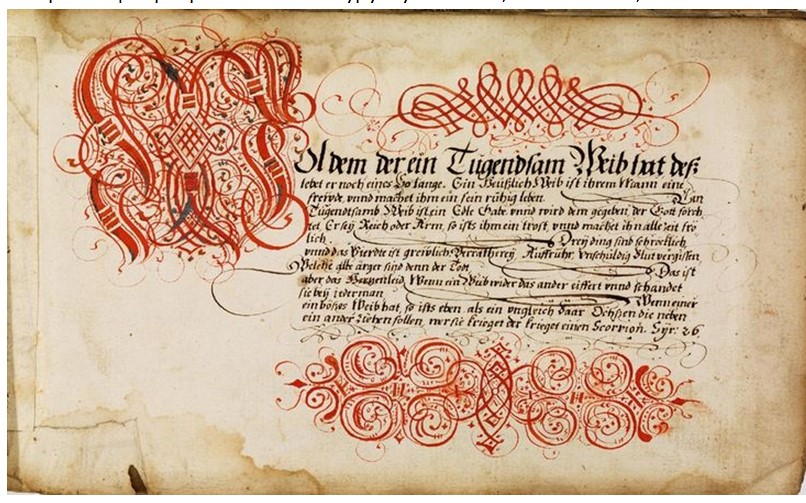 Wol dem der ein Tugendsam Weib hat deß
lebet er noch eines So lange. Ein Heußlich Weib ist ihrem Mann eine
freüde, vnnd machet ihm ein fein rühig leben. Ein
Tugendtsamb Weib ist ein Edle Gabe vnnd wird dem gegeben, der Gott förch
tet Er sey Reich oder Arm, so ists ihm ein trost, vnnd machet ihn alle Zeit frö
lich. Drey ding sind schröcklich
vnnd das Vierdte ist greivlich Verrätherey Auffruhr, vnschüldig Blut vergissen
Welche alle ärger sind denn der Tod. Das ist
aber das Hertzenleid, Wenn ein Weib wider das ander eiffert vnnd schandet
sie beÿ iederman Wenn einer
ein böses Weib hat, so ists eben als ein vngleich Paar Ochssen die neben
ein ander Ziehen sollen, wer sie krieget der krieget einen Scorpion. Syr: 26